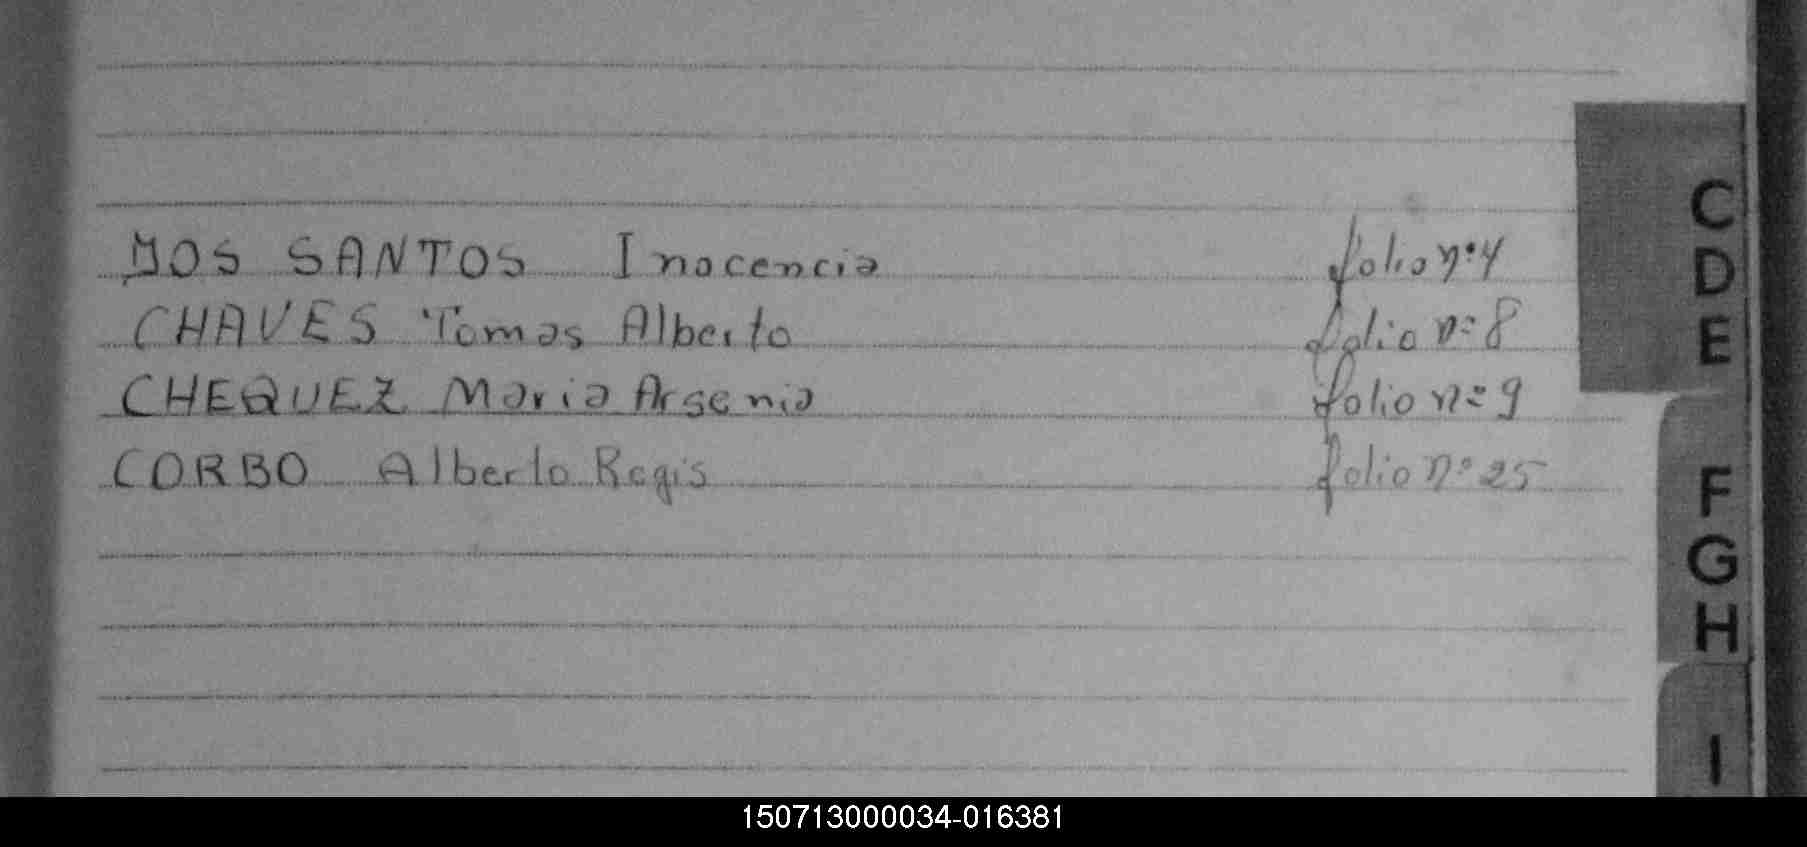 DOS SANTOS Inocencia folio nº 4
CHAVES Tomas Alberto folio nº 8
CHEQUEZ Maria Arsenia folio nº 9
CORBO Alberto Regis folio nº 25
C
D
E
F
G
H
I
150713000034-016381